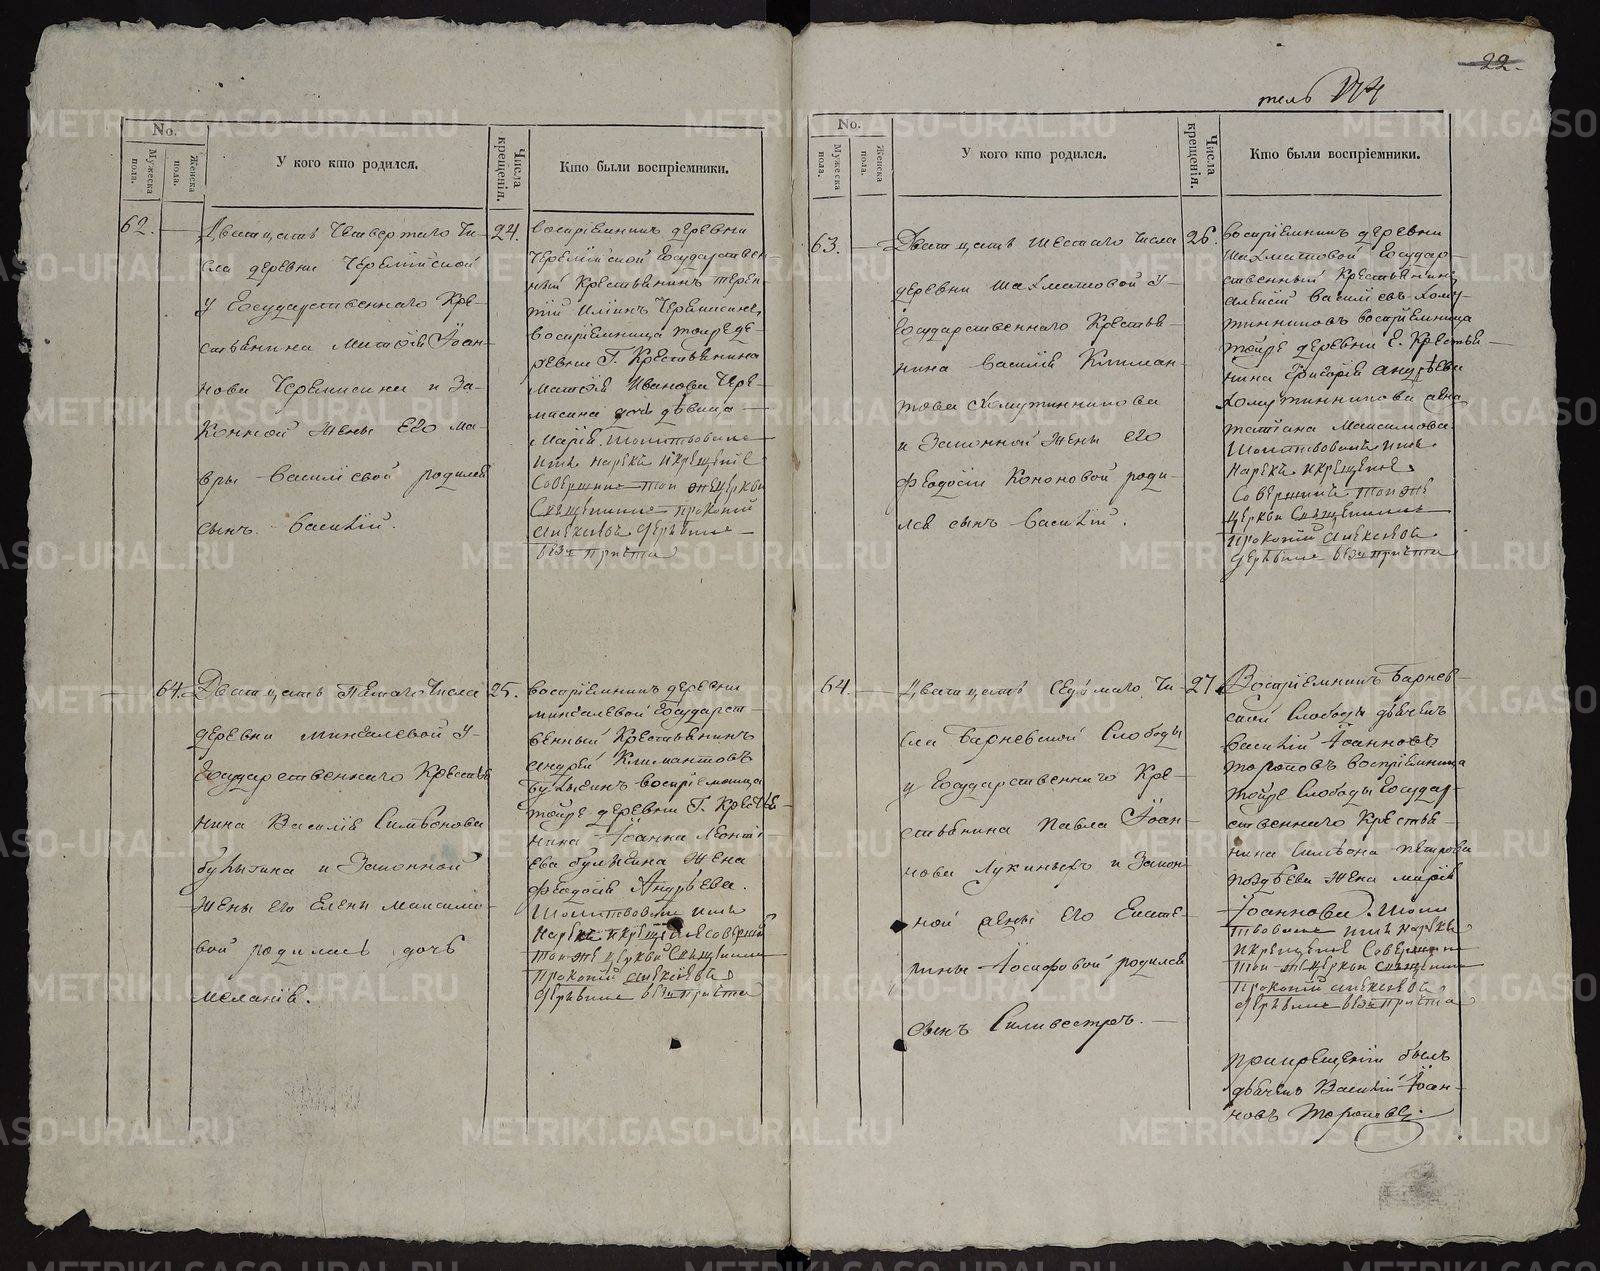 22.
тель
No.
Мужеска пола.
Женска пола.
У кого кто родился.
Числа крещенія.
Кто были воспріемники.
62.
Дватцать Четвертаго Чи-
сла деревни Черемисской
у Государственнаго Кре-
стьянина Матфія Іоан-
нова Черемисина и За-
конной жены Его Ма-
вры Василіевой родился
сынъ Василій.
24.
воспріемникъ деревни
Черемисской Государствен-
ный Крестьянинъ Терен-
тій Ильинъ Черемисинъ,
воспріемница тойже де-
ревни Г. Крестьянина
Матфія Иванова Чере-
мисина дочь девица
Марія. Молитвовалъ
имя нарекъ и крещеніе
Совершилъ тоя же церкви
Священникъ Прокопій
Алексіевъ
безъ причта
64.
Дватцать Пятаго Числа
деревни Мингалевой у
Государственнаго Крестья-
нина Василія Симеонова
и Законной
жены его Елены Максимо-
вой родилась дочь
Меланія.
25.
воспріемникъ деревни
Мингалевой Государст-
венный Крестьянинъ
Андрей Климантовъ
воспріемница
тойже деревни Г. Крестья-
нина Іоанна Леонті-
ева жена
Феодосія Андреева.
Молитвовалъ имя
нарекъ и крещеніе совершилъ
тоя же церкви Священникъ
Прокопій Алексіевъ
безъ причта
No.
Мужеска пола.
Женска пола.
У кого кто родился.
Числа крещенія.
Кто были воспріемники.
63.
Дватцать шестаго числа
деревни Шахматовой у
Государственнаго Крестья-
нина Василія Климан-
това Хомутинникова
и Законной жены его
Феодосіи Кононовой роди-
лся сынъ Василій.
26.
воспріемникъ деревни
Шахматовой Государ-
ственный Крестьянинъ
Алексій Василіевъ Хому-
тинниковъ воспріемница
тойже деревни Г. Крестья-
нина Григорія Андреева
Хомутинникова жена
Татіана Максимова.
Молитвовалъ имя
нарекъ и крещеніе
Совершилъ тоя же
церкви Священникъ
Прокопій Алексіевъ
безъ причта
64.
Дватцать седьмаго Чи-
сла Барневской Слободы
у Государственнаго Кре-
стьянина Павла Іоан-
нова Лукиныхъ и Закон-
ной жены его Екате-
рины Іосифовой родился
сынъ Силивестръ.
27.
Воспріемникъ Барнев-
ской Слободы дьячекъ
Василій Іоанновъ
Тороповъ воспріемница
тойже Слободы Государ-
ственнаго Крестья-
нина Симеона Петрова
Поздеева жена Марія
Іоаннова. Моли-
твовалъ имя нарекъ
и крещеніе Совершилъ
тоя же церкви Священникъ
Прокопій Алексіевъ
безъ причта
При крещеніи былъ
дьячекъ Василій Іоан-
новъ Тороповъ.
METRIKI.GASO-URAL.RU